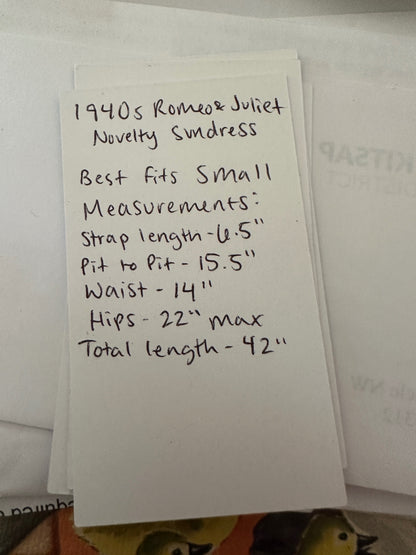 1940s Romeo & Juliet
Novelty Sundress
Best fits Small
Measurements:
Strap length - 6.5"
Pit to Pit - 15.5"
Waist - 14"
Hips - 22" max
Total length - 42"
KITSAP